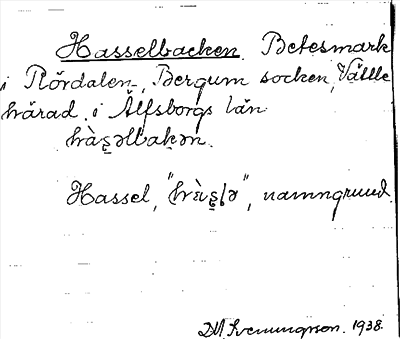 Hasselbacken. Betesmark
i Rördalen, Bergum socken, Vättle
härad i Älfsborgs län
hàs̱əlbakən.
Hassel, "hὰs̱lə", namngrund.
DM Svenungsson. 1938.